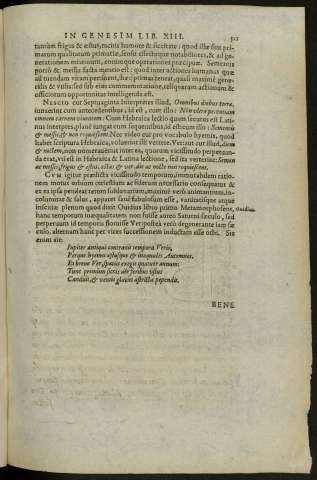 IN GENESIM LIB. XIII. 511
tantùm frigus & æstus, tacitis humore & siccitate: quod illæ sint pri-
marum qualitatum primariæ, suntque effectúque notabiliores, & ad ge-
nerationem mixtorum, eorumque operationes præcipuæ. Sementis
porrò & messis facta mentio est: quod inter actiones humanas quæ
ad tuendam vitam pertinent, hæ primæ sint, quasi maximè gene-
ralis & vsitatæ sed sub eius commemoratione, reliquarum actionum &
officiorum opportunitas intelligenda est.
NESCIO cur Septuaginta Interpretes illud, Omnibus diebus terræ,
iunxerint cum antecedentibus, id est, cum illo: Non vltra percutiam
omnem carnem viuentem: Cùm Hebraica lectio quem secutus est Lati-
nus interpres, planè iungat cum sequentibus, id est cum illo: Sementis
& messis, & non requiescent. Nec video cur pro vocabulo hyemis, quod
habet scriptura Hebraica, voluerint illi vertere, Ver: aut cur illud, diem
& noctem, non numerauerint inter ea, quorum vicissitudo perpetuan-
da erat, vti est in Hebraica & Latina lectione, sed ita verterint: Semen
ac messis, frigus & æstus, æstas & ver die ac nocte non requiescent.
CVM igitur prædicta vicissitudo temporum, immutabilem ratio-
nem motus orbium cœlestium ac siderum necessariò consequatur &
ex ea ipsa pendeat rerum sublunarium, maximè verò animantium, in-
columitas & salus, apparet fanè fabulosum esse, vanitatisque atque
inscitiæ plenum quod dixit Ouidius libro primo Metamorphoseon,
hanc temporum inæqualitatem non fuisse aureo Saturni sæculo, sed
perpetuum id temporis floruisse Ver: postea verò degenerante iam sæ-
culo, alternam hunc per vices successionem inductam esse orbi. Sic
enim ait:
Ouidius
Iupiter antiqui contraxit tempora Veris,
Perque hyemes æstusque & inæquales Autumnos,
Et breue Ver, spatiis exegit quatuor annum:
Tunc primùm siccis aër feruibus vstus
Canduit, & ventis glacies astricta pependit.
BENE